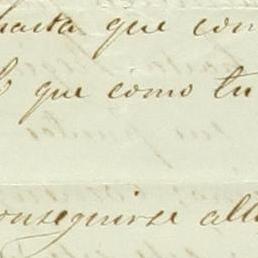 hasta que com
que como tu
onseguirse alla